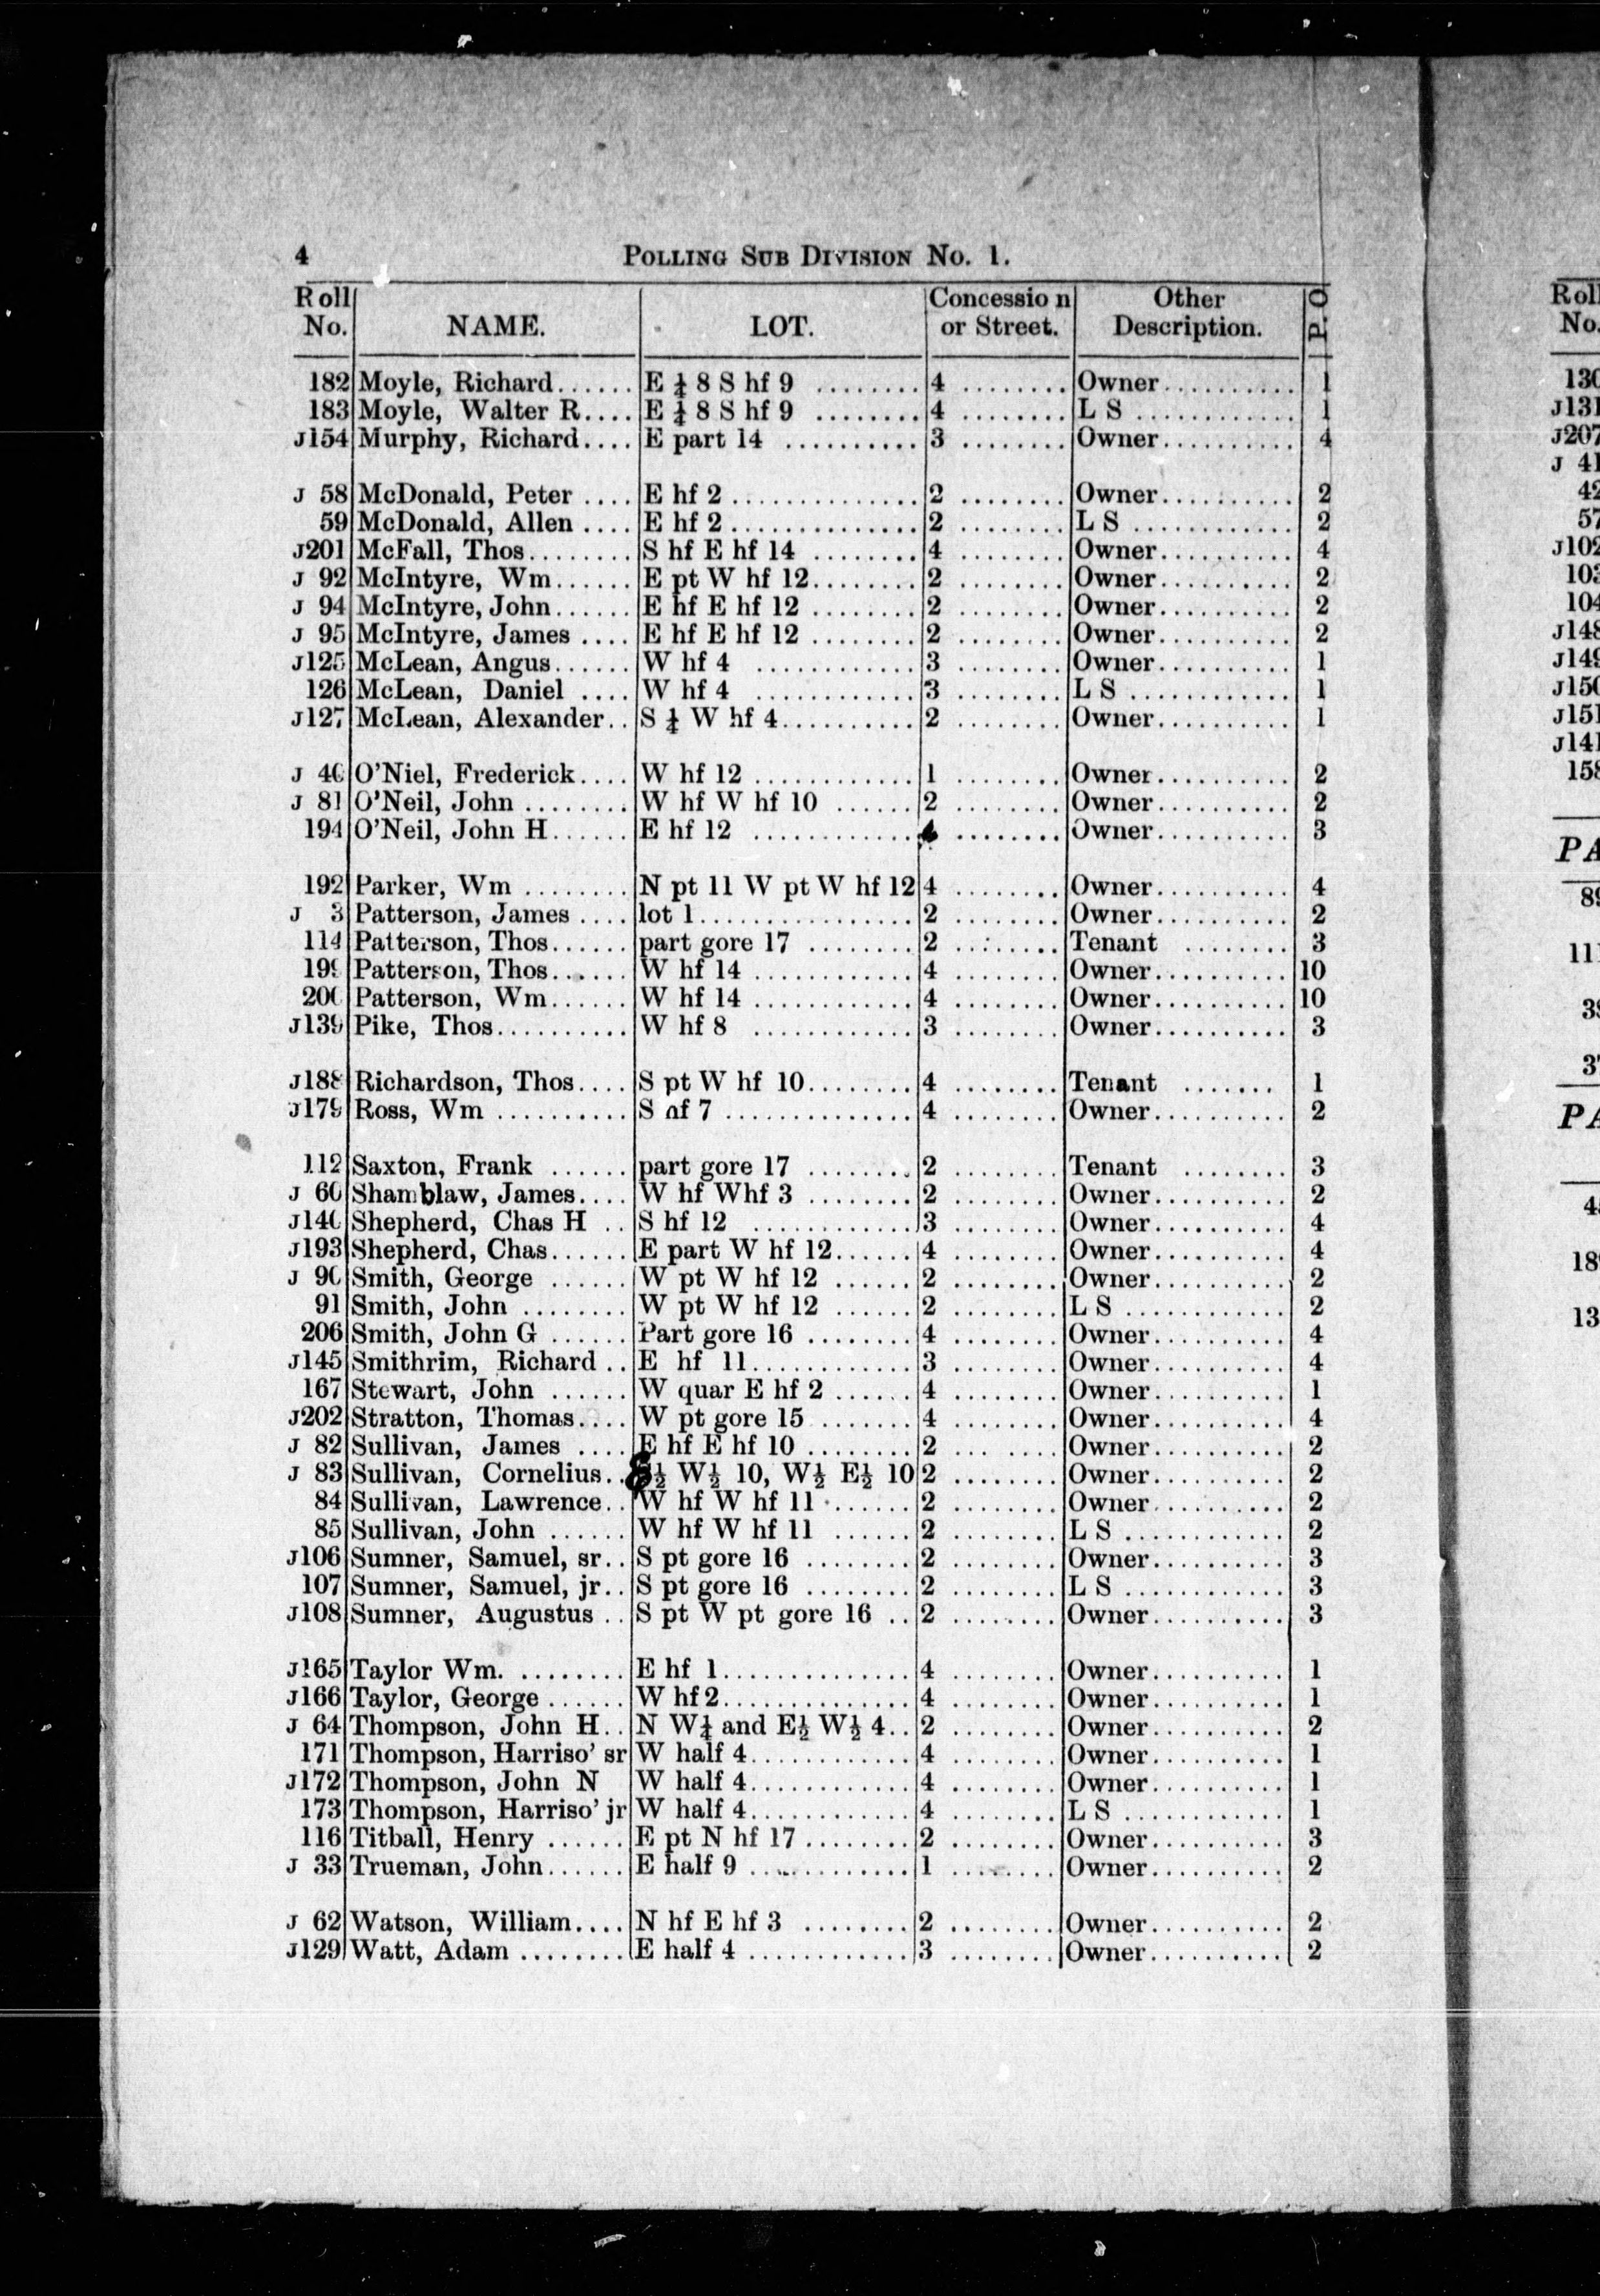 4 POLLING SUB DIVISION No. 1.
Roll No. NAME. LOT. Concessio n or Street. Other Description. P. O
182 Moyle, Richard...... E ¼ 8 S hf 9 ........ 4 ........ Owner.......... 1
183 Moyle, Walter R.... E ¼ 8 S hf 9 ........ 4 ........ L S ............ 1
J154 Murphy, Richard.... E part 14 .......... 3 ........ Owner.......... 4
J 58 McDonald, Peter .... E hf 2.............. 2 ........ Owner.......... 2
59 McDonald, Allen .... E hf 2.............. 2 ........ L S ............ 2
J201 McFall, Thos........ S hf E hf 14 ........ 4 ........ Owner.......... 4
J 92 McIntyre, Wm...... E pt W hf 12........ 2 ........ Owner.......... 2
J 94 McIntyre, John...... E hf E hf 12 ........ 2 ........ Owner.......... 2
J 95 McIntyre, James .... E hf E hf 12 ........ 2 ........ Owner.......... 2
J125 McLean, Angus...... W hf 4 ............ 3 ........ Owner.......... 1
126 McLean, Daniel .... W hf 4 ............ 3 ........ L S ............ 1
J127 McLean, Alexander.. S ¼ W hf 4.......... 2 ........ Owner.......... 1
J 40 O'Niel, Frederick.... W hf 12 ............ 1 ........ Owner.......... 2
J 81 O'Neil, John ........ W hf W hf 10 ...... 2 ........ Owner.......... 2
194 O'Neil, John H...... E hf 12 ............ 4 ........ Owner.......... 3
192 Parker, Wm ........ N pt 11 W pt W hf 12 4 ........ Owner.......... 4
J 3 Patterson, James .... lot 1................ 2 ........ Owner.......... 2
114 Patterson, Thos...... part gore 17 ........ 2 ........ Tenant ........ 3
199 Patterson, Thos...... W hf 14 ............ 4 ........ Owner.......... 10
200 Patterson, Wm...... W hf 14 ............ 4 ........ Owner.......... 10
J139 Pike, Thos.......... W hf 8 ............ 3 ........ Owner.......... 3
J188 Richardson, Thos.... S pt W hf 10........ 4 ........ Tenant ....... 1
J179 Ross, Wm .......... S hf 7 .............. 4 ........ Owner.......... 2
112 Saxton, Frank ...... part gore 17 ........ 2 ........ Tenant ........ 3
J 60 Shamblaw, James.... W hf Whf 3 ........ 2 ........ Owner.......... 2
J140 Shepherd, Chas H .. S hf 12 ............ 3 ........ Owner.......... 4
J193 Shepherd, Chas...... E part W hf 12...... 4 ........ Owner.......... 4
J 90 Smith, George ...... W pt W hf 12 ...... 2 ........ Owner.......... 2
91 Smith, John ........ W pt W hf 12 ...... 2 ........ L S ............ 2
206 Smith, John G ...... Part gore 16 ........ 4 ........ Owner.......... 4
J145 Smithrim, Richard .. E hf 11............ 3 ........ Owner.......... 4
167 Stewart, John ...... W quar E hf 2 ...... 4 ........ Owner.......... 1
J202 Stratton, Thomas.... W pt gore 15 ....... 4 ........ Owner.......... 4
J 82 Sullivan, James .... E hf E hf 10 ........ 2 ........ Owner.......... 2
J 83 Sullivan, Cornelius.. E½ W½ 10, W½ E½ 10 2 ........ Owner.......... 2
84 Sullivan, Lawrence.. W hf W hf 11 ...... 2 ........ Owner.......... 2
85 Sullivan, John ...... W hf W hf 11 ...... 2 ........ L S ............ 2
J106 Sumner, Samuel, sr.. S pt gore 16 ........ 2 ........ Owner.......... 3
107 Sumner, Samuel, jr.. S pt gore 16 ........ 2 ........ L S ............ 3
J108 Sumner, Augustus .. S pt W pt gore 16 .. 2 ........ Owner.......... 3
J165 Taylor Wm. ........ E hf 1.............. 4 ........ Owner.......... 1
J166 Taylor, George ...... W hf 2.............. 4 ........ Owner.......... 1
J 64 Thompson, John H.. N W¼ and E½ W½ 4.. 2 ........ Owner.......... 2
171 Thompson, Harriso' sr W half 4............ 4 ........ Owner.......... 1
J172 Thompson, John N W half 4............ 4 ........ Owner.......... 1
173 Thompson, Harriso' jr W half 4............ 4 ........ L S ............ 1
116 Titball, Henry ...... E pt N hf 17........ 2 ........ Owner.......... 3
J 33 Trueman, John...... E half 9 ............ 1 ........ Owner.......... 2
J 62 Watson, William.... N hf E hf 3 ........ 2 ........ Owner.......... 2
J129 Watt, Adam ........ E half 4 ............ 3 ........ Owner.......... 2
Roll
No.
130
J131
J207
J 41
42
57
J102
103
104
J148
J149
J150
J151
J141
158
PA
89
111
PA